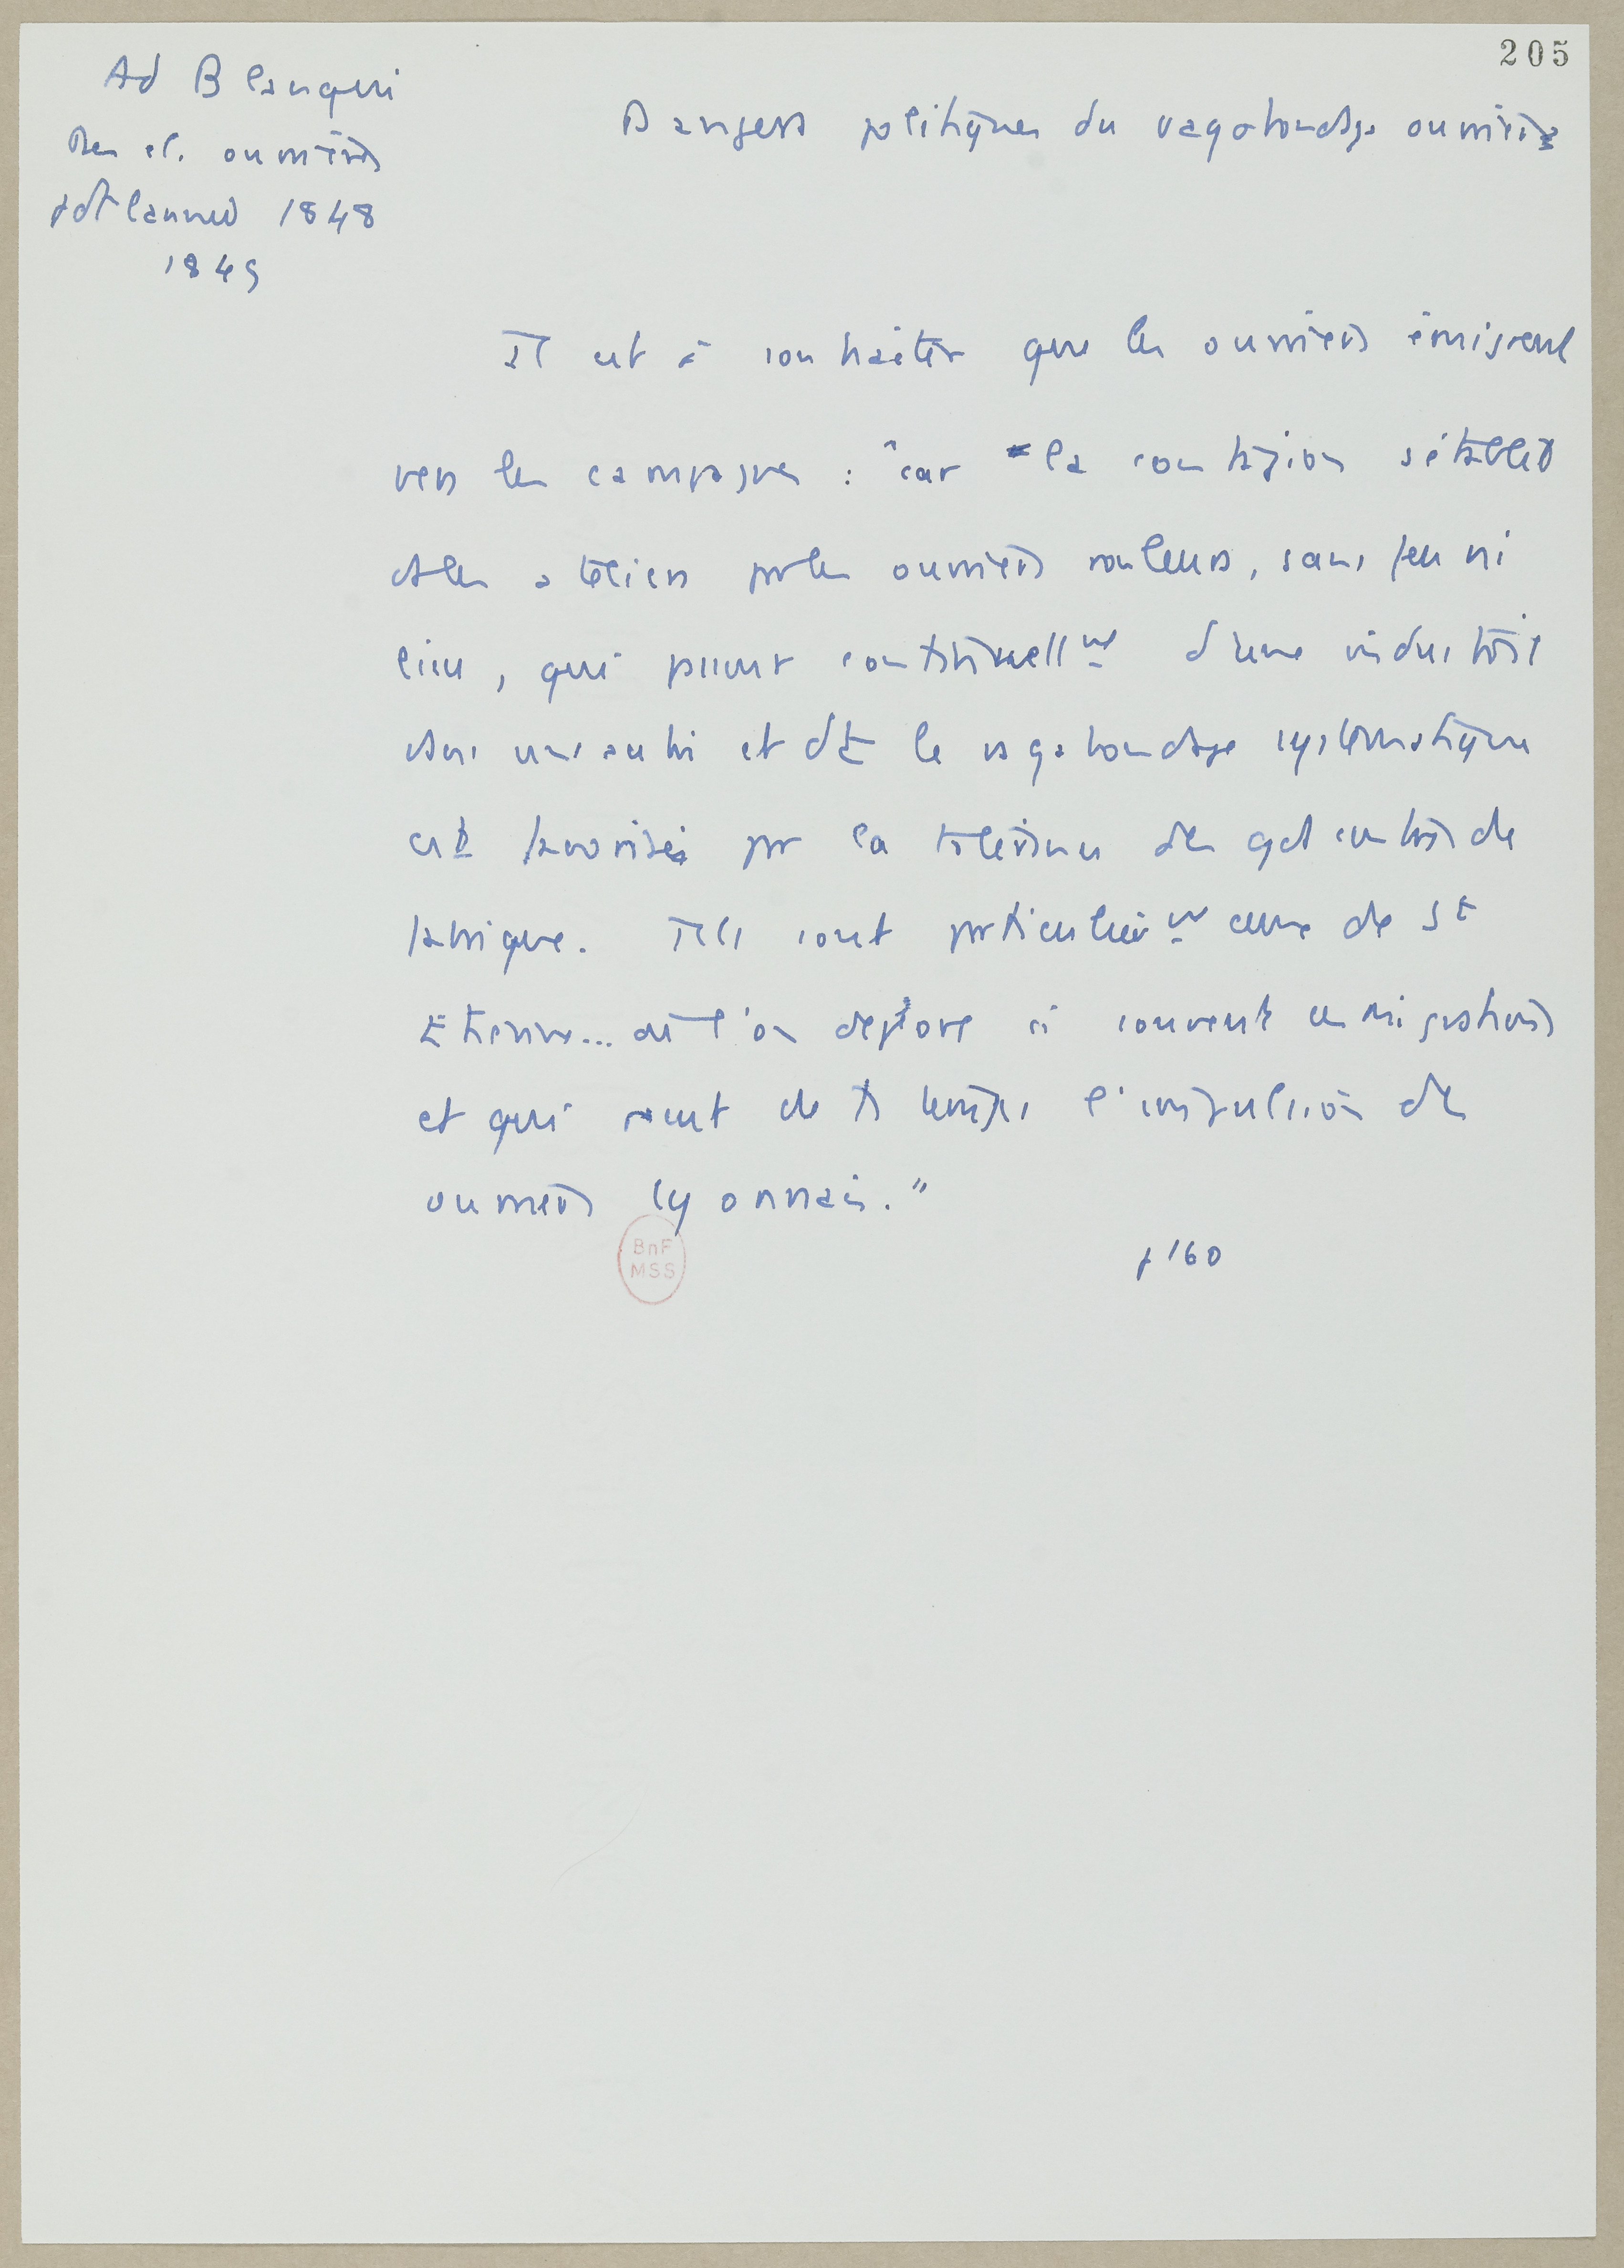 205
Ad Blanqui
Des cl. ouvrières
pdt l'année 1848
1849
Dangers politiques du vagabondage ouvrier
Il est à souhaiter que les ouvriers émigrent
vers les campagnes : "car la contagion s'établit
ds les ateliers par les ouvriers rouleurs, sans feu ni
lieu, qui passent continuellmt d'une industrie
dans une autre et dt le vagabondage systématique
est favorisé par la tolérance des qq centres de
fabrique. Tels sont particulièrmt ceux de St
Etienne... où l'on déplore si souvent ces migrations
et qui reçut de ts temps l'impulsion des
ouvriers lyonnais."
p 160
BnF
MSS